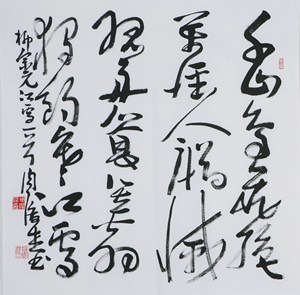 千山鳥飛絕
萬徑人蹤滅
孤舟蓑笠翁
獨釣寒江雪
柳宗元江雪一首